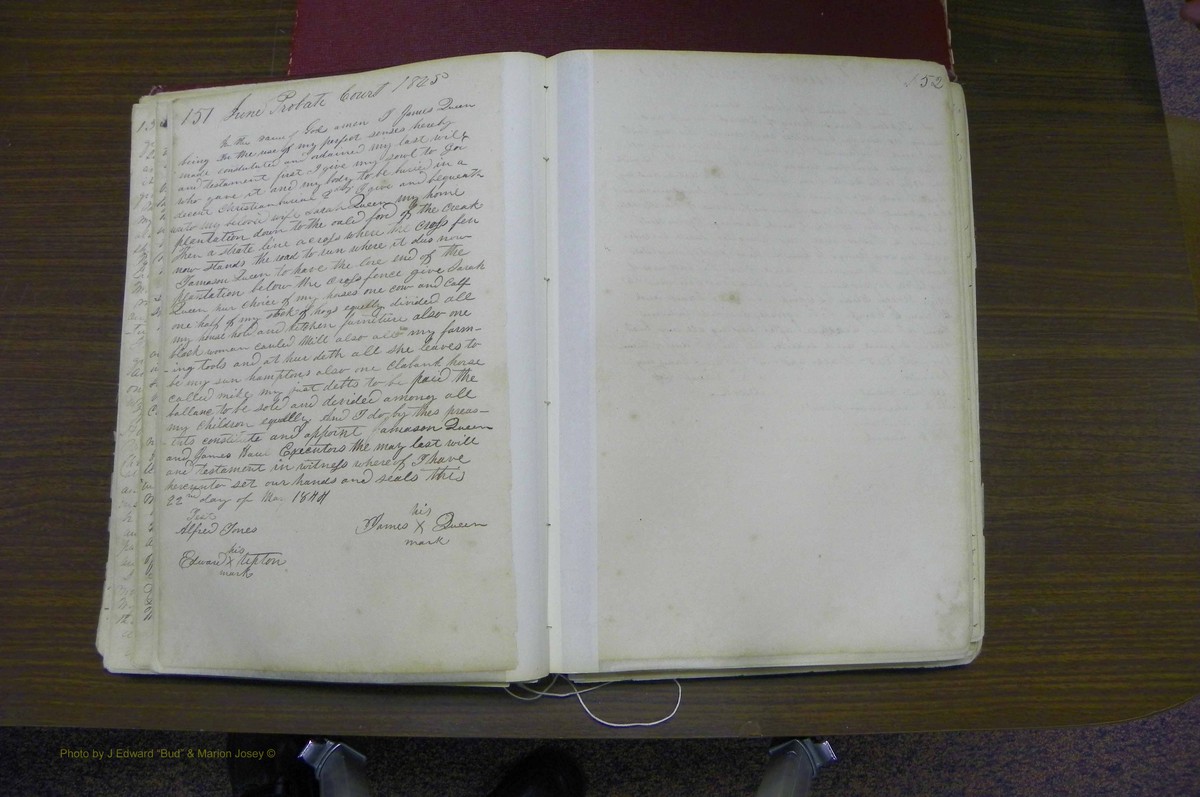 151 June Probate Court 1845
In the name of God amen I James Queen
being in the use of my perfect senses hereby
made constituted and ordained my last will &
and testament first I give my soul to God
who gave it and my body to be buried in a
decent Christian burial I give and bequeath
unto my belovd wife Sarah Queen my home
plantation down to the oald ford of the creak
then a strate line across where the cross fen
now stands the road to run where it dus now
Jamason Queen to have the lore end of the
plantation below the cross fence give Sarah
Queen hur choice of my horses one cow and calf
one half of my stock of hogs equelly divided all
my house hold and kitchen furniture also one
black woman cauled Mill also all my farm-
-ing tools and at hur deth all she leaves to
be my sun hamptons also one horse
called my just debts to be paid the
ballanc to be sold and devided among all
my children equelly And I do by thes preas-
ents constitute and appoint Jamason Queen
and James Executors the may last will
and testament in witness where of I have
hereunto set our hands and seals this
22nd day of 1844
Test
Alfred Jones
his
James X Queen
mark
his
Edward X tipton
mark
152
Photo by J Edward "Bud" & Marion Josey ©